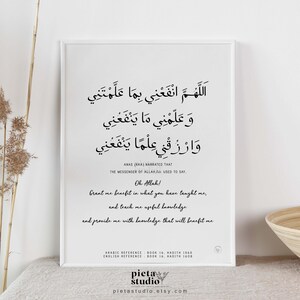 اَللَّهُمَّ انْفَعْنِي بِمَا عَلَّمْتَنِي
وَعَلِّمْنِي مَا يَنْفَعُنِي
وَارْزُقْنِي عِلْمًا يَنْفَعُنِي
ANAS (RAA) NARRATED THAT
THE MESSENGER OF ALLAH(SAW) USED TO SAY,
Oh Allah!
Grant me benefit in what you have taught me,
and teach me useful knowledge
and provide me with knowledge that will benefit me
ARABIC REFERENCE : BOOK 16, HADITH 1608
ENGLISH REFERENCE : BOOK 16, HADITH 1608
pieta
studio
pietastudio.etsy.com